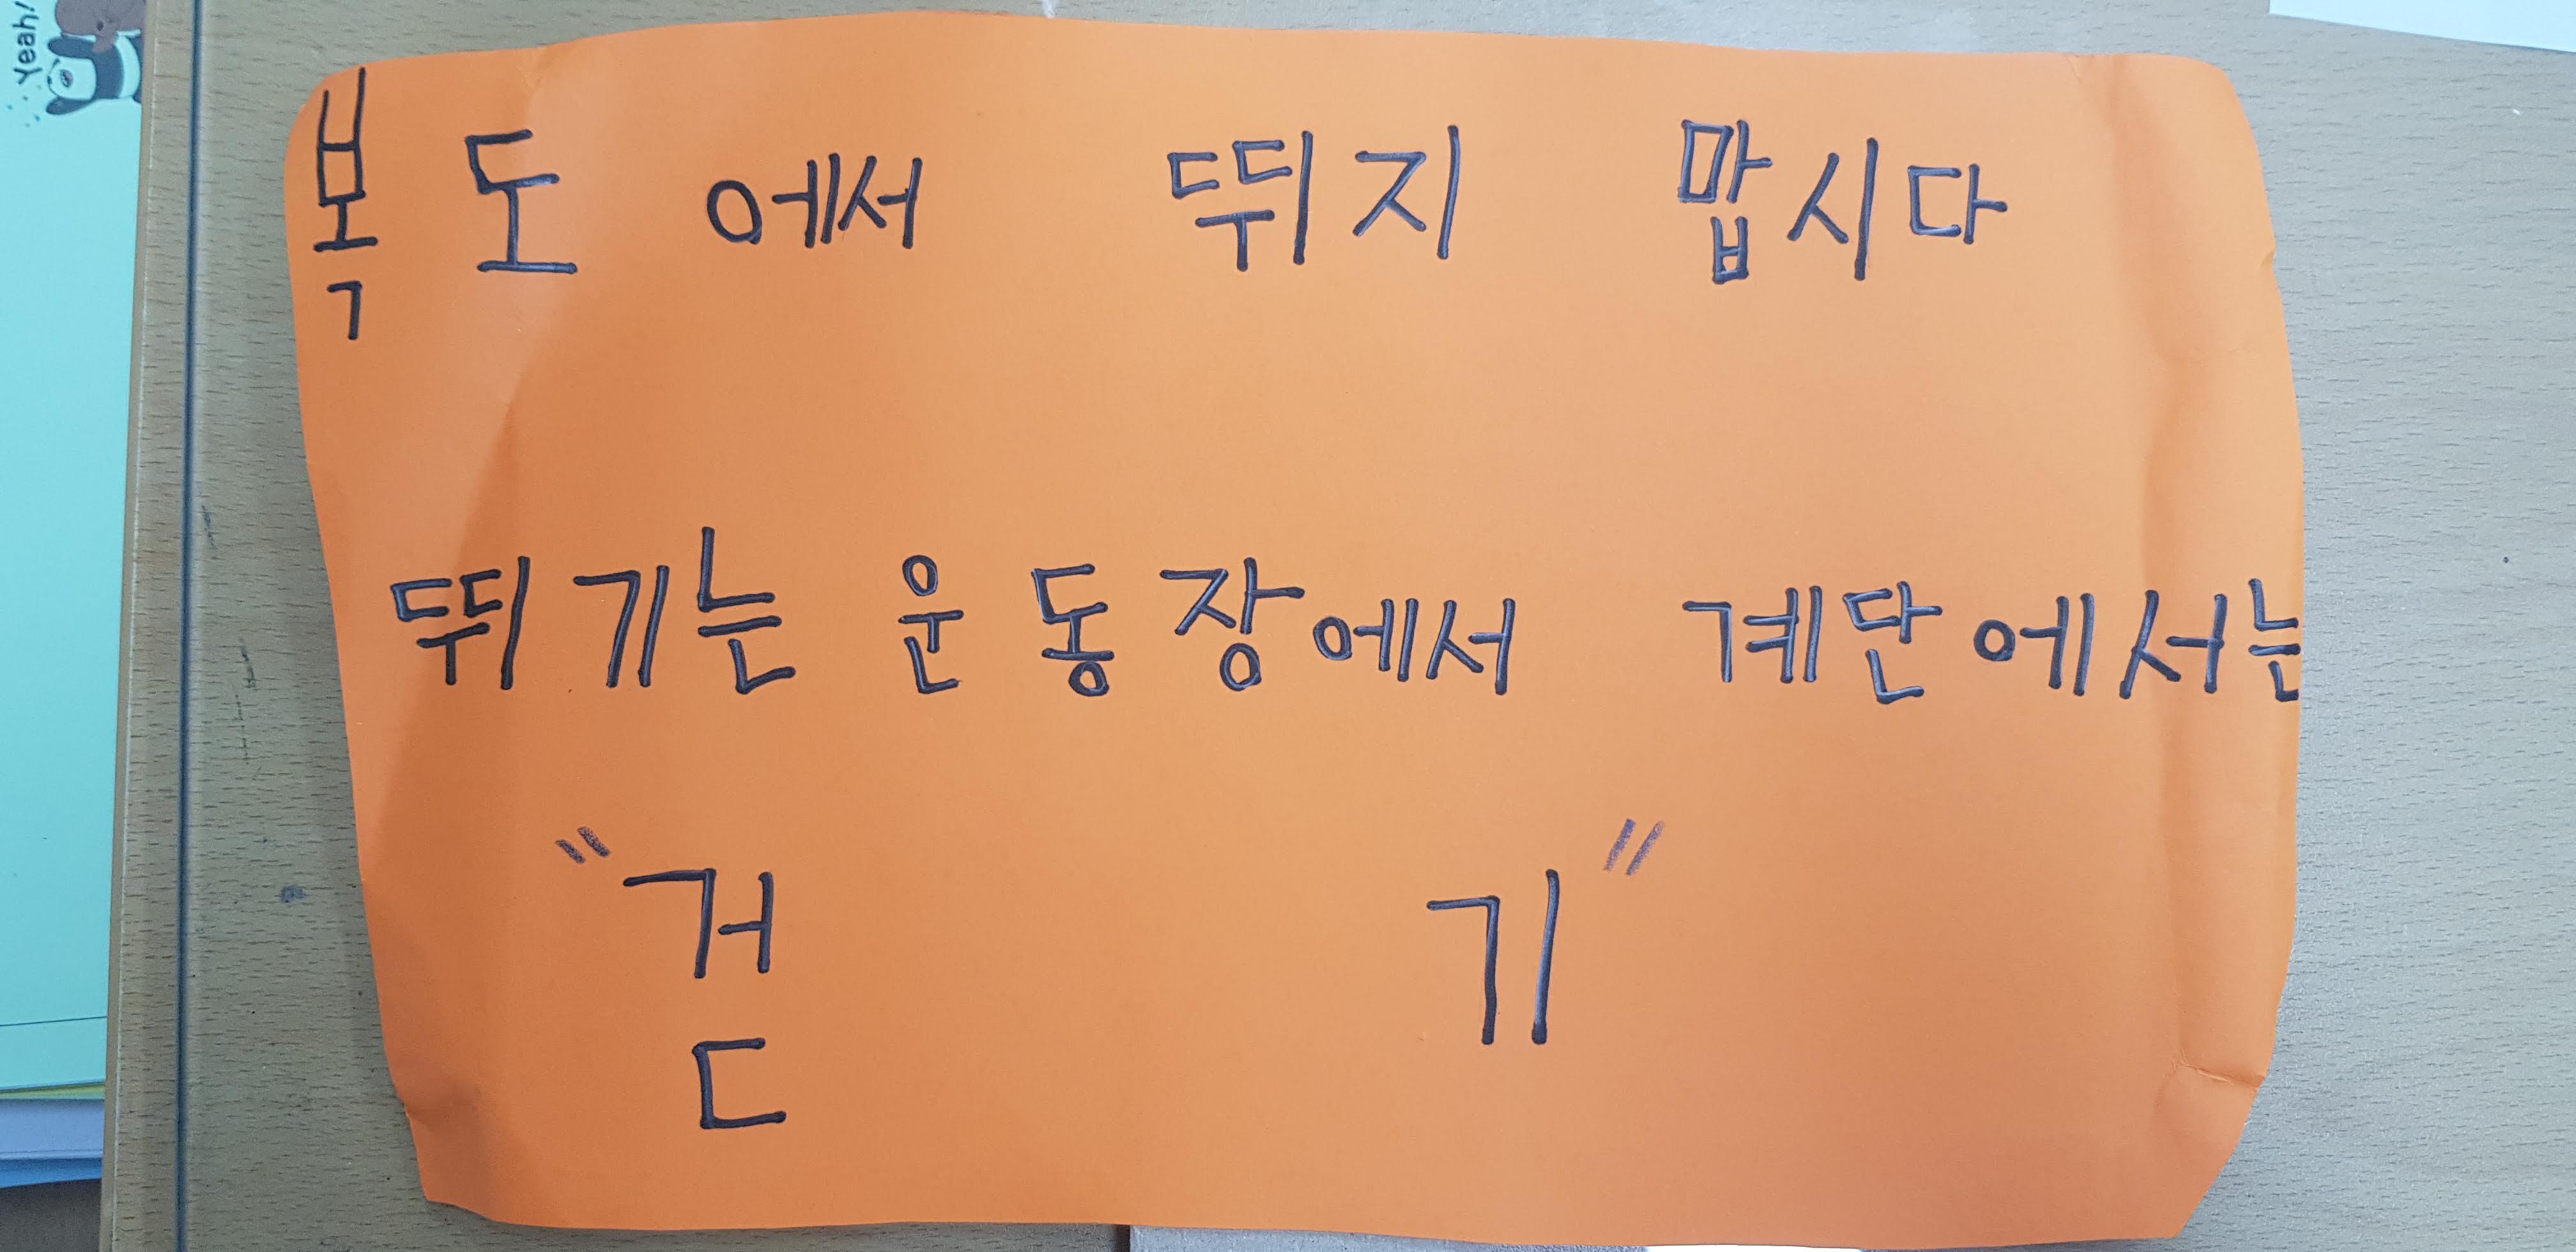 Yeah!
복도에서 뛰지 맙시다
뛰기는 운동장에서 계단에서는
"걷기"